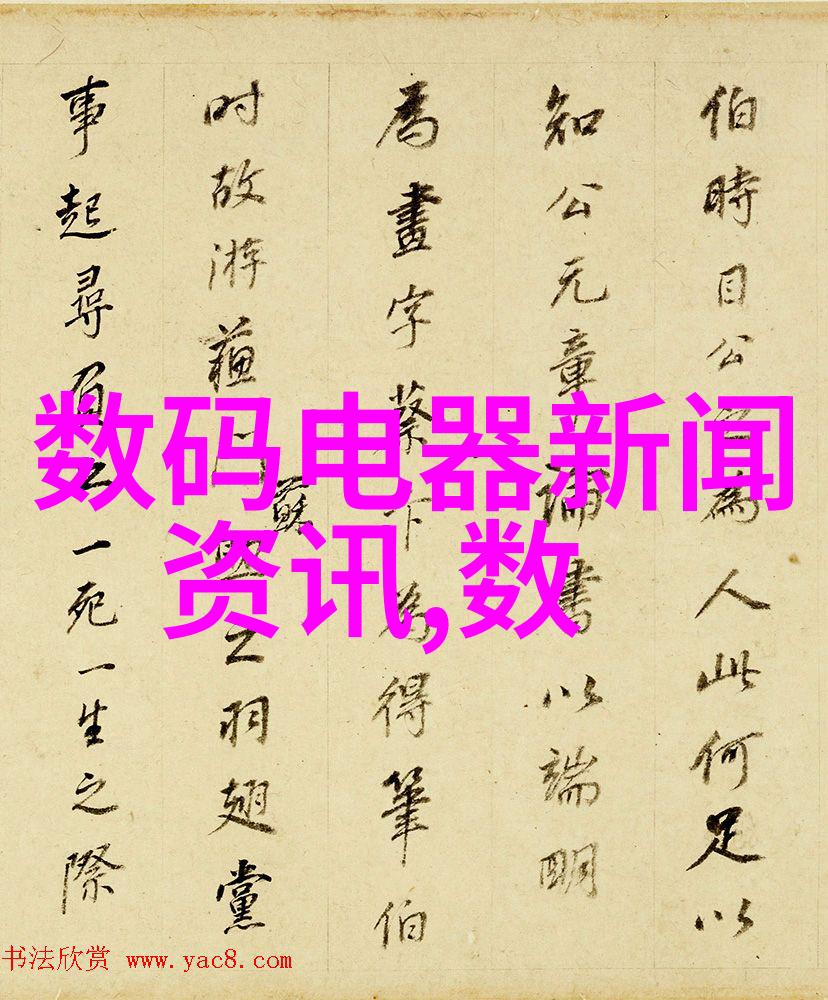 伯時目公為人此何足以
知公元章論書以端明
為畫字蔡卞為得筆伯
时故游蘓門之羽翅黨
蘇
事起尋負之一死一生之際
数码电器新闻
资讯,数
书法欣赏 www.yac8.com